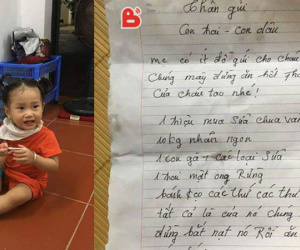 B
Thân gửi
Con trai - con dâu
mẹ có ít đồ gửi cho cháu
Chúng mày đừng ăn hết
Của cháu tao nhé!
1 triệu mua sữa chua
10kg nhãn ngon
1 con gà + các loại sữa
1 chai mật ong Rừng
bánh kẹo các thứ các thứ
tất cả là của nó Chúng
đừng bắt nạt nó Rồi ăn